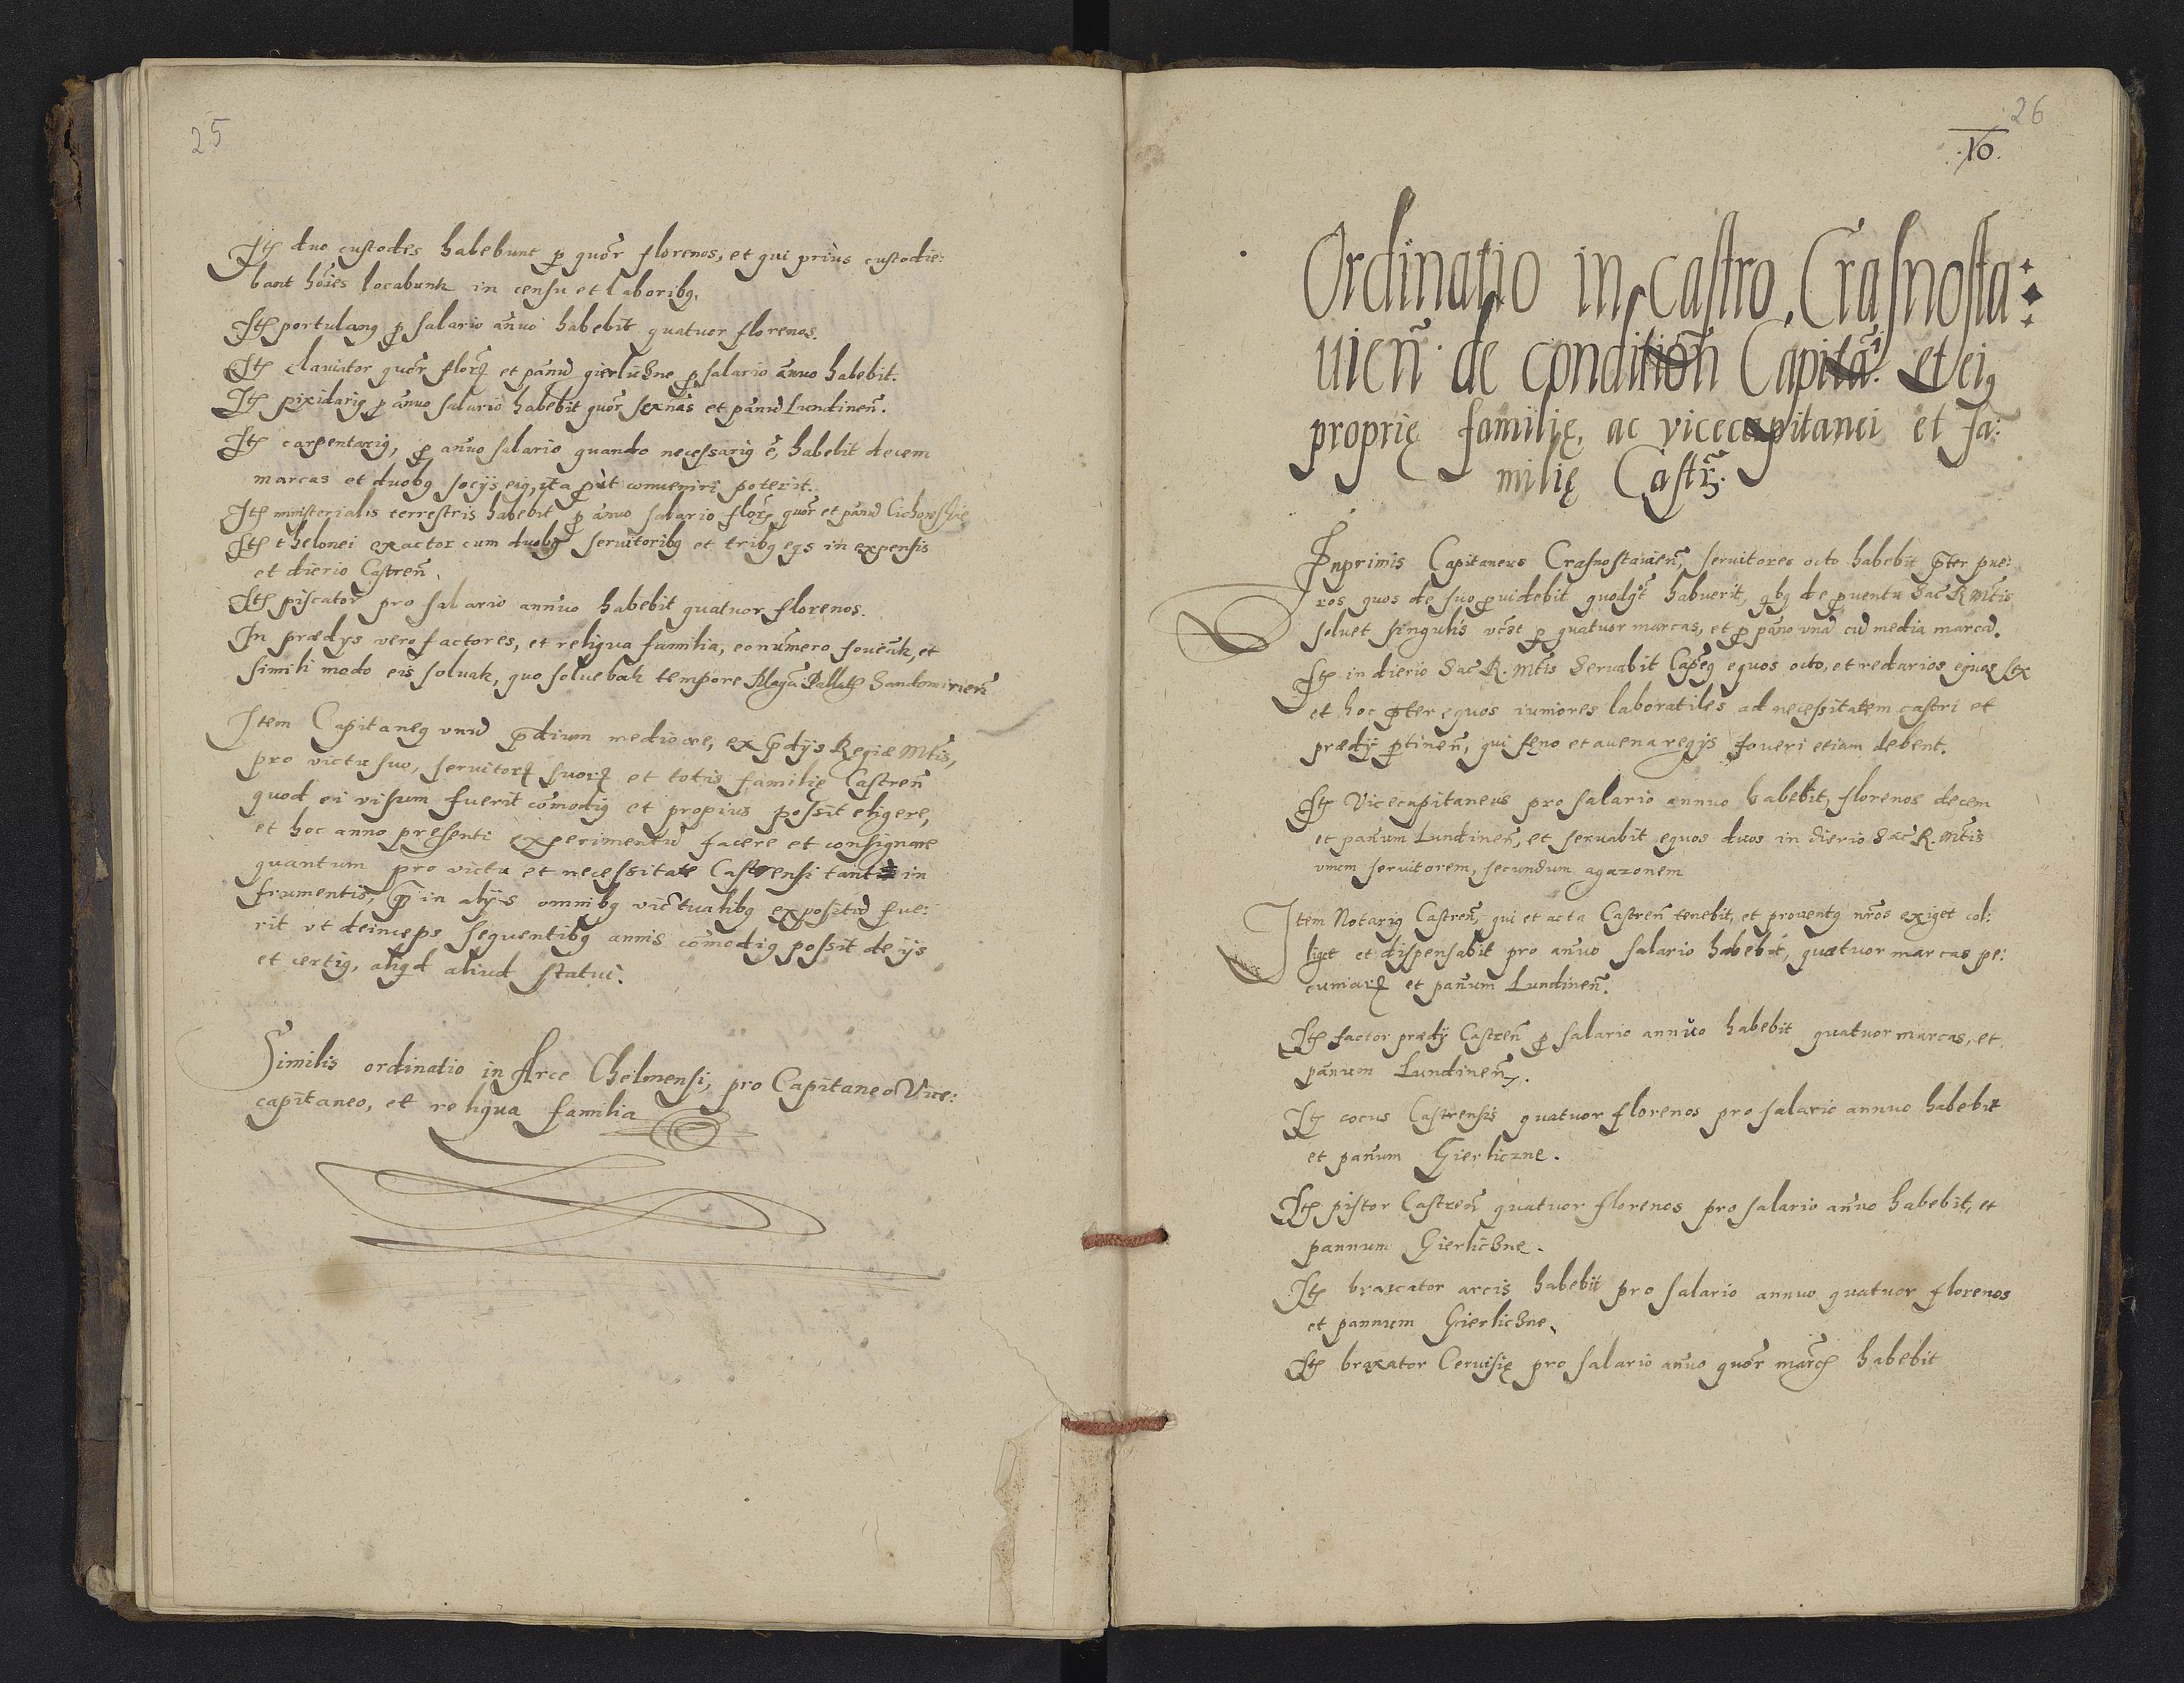 25
Itē duo custodes habebunt ꝑ quōr florenos, et qui prius custodie:
bant hōies locabunt in censu et laboribꝫ.
Itē portulanꝰ ꝑ salario annuo habebit quatuor florenos.
Itē claviator quōr florꝝ et pannū gierliczne ꝑ salario annuo habebit.
Itē pixidariꝰ ꝑ annuo salario habebit quōr sexnas et pannū Lundineñ.
Itē carpentariꝰ, ꝑ annuo salario quando necessariꝰ ē, habebit decem
marcas et duobꝰ socijs eiꝰ, ita ꝑut conveniri poterit.
Itē ministerialis terrestris habebit ꝑ annuo salario florꝝ quōr et pannū
Itē thelonei exactor cum duobꝰ servitoribꝰ et tribꝰ eqs in expensis
et dierio Castreñ.
Itē piscator pro salario annuo habebit quatuor florenos.
In prædys vero factores, et reliqua familia, eo numero foveāt, et
simili modo eis solvāt, quo solvebāt tempore Palla Sandomirieñ
Item Capitaneꝰ vnū p̄dium mediocre, ex p̄dijs Regiæ Mtis,
pro victu suo, servitorꝝ suorꝝ et totis familię Castreñ
quod ei visum fuerit cōmodiꝰ et propius possit eligere,
et hoc anno presenti experimentū facere et consignare
quantum pro victu et necessitate Castrensi tantū in
frumentis, q̄ in alijs omnibꝰ victualibꝰ expositū fue:
rit vt deinceps sequentibꝰ annis cōmodiꝰ possit de ijs
et certiꝰ, aliqd aliud statui.
Similis ordinatio in Arce Chelmensi, pro Capitaneo Vice:
capitaneo, et reliqua familia
26
.10.
Ordinatio in castro Crasnosta:
uieñ. de condition̄ Capitā. et eiꝰ
proprię familię, ac vicecapitanei et fa:
milię Castrꝫ.
Inprimis Capitaneus Crasnostauieñ, servitores octo habebit p̄ter pue:
ros quos de suo ꝓvidebit quodqt̄ habuerit, qbꝰ de ꝓventu Sac̄ R Mtis
solvet singulis vczt ꝑ quatuor marcas, et ꝑ panno vnā cū media marca.
Itē in dierio Sac̄ R. Mtis Servabit Capeꝰ equos octo, et redarios equos sex
et hoc p̄ter equos iumores laboratiles ad necessitatem castri et
prædij ꝑtineñ, qui fęno et avena regijs foveri etiam debent.
Itē Vicecapitaneus pro salario annuo habebit, florenos decem
et pañum Lundineñ, et servabit equos duos in dierio Sac̄ R. Mtis
vnum servitorem, secundum agazonem
Item Notariꝰ Castreñ, qui et acta Castreñ tenebit, et proventꝰ nr̄os exiget col:
liget et dispensabit pro annuo salario habebit, quatuor marcas pe:
cuniarꝝ et pañum Lundineñ.
Itē factor prædij Castreñ ꝑ salario annuo habebit quatuor marcas, et
pañum Lundineñ.
Itē cocus Castrensis quatuor florenos pro salario annuo habebit
et pañum Gierliczne.
Itē pistor Castreñ quatuor florenos pro salario annuo habebit, et
pannum Gierliczne.
Itē braseator arcis habebit pro salario annuo quatuor florenos
et pannum Gierliczne.
Itē braxator Cervisię pro salario annuo quōr marcꝭ habebit